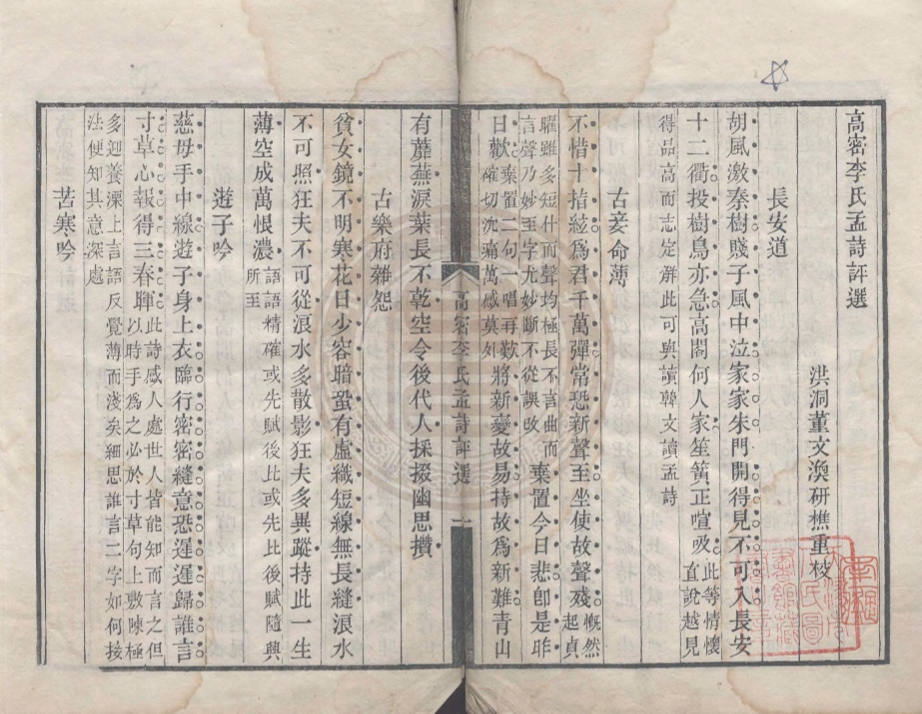 高密李氏孟詩評選
洪洞董文渙研樵重校
長安道
胡風激秦樹賤子風中泣家家朱門開得見不可入長安
十二衢投樹鳥亦急高閣何人家笙簧正喧吸此等情懷直說越見
得品高而志定辭此可與讀韓文讀孟詩
古妾命薄
不惜十指絃為君千萬彈常恐新聲至坐使故聲殘慨然起貞
驩雖多短什而聲均極長不言曲而言聲乃妙至字尤妙斷不從誤改棄置今日悲卽是昨
日歡棄置二句一唱再歎確切沈痛萬感莫外將新變故易持故為新難青山
有蘼蕪淚葉長不乾空令後代人採掇幽思攢
高密李氏孟詩評選
一
古樂府雜怨
貧女鏡不明寒花日少容暗蛩有虛織短線無長縫浪水
不可照狂夫不可從浪水多散影狂夫多異蹤持此一生
薄空成萬恨濃語語精確或先賦後比或先比後賦隨興所至
遊子吟
慈母手中線遊子身上衣臨行密密縫意恐遲遲歸誰言
寸草心報得三春暉此詩感人處世人皆能知而言之但以時手為之必於寸草句上敷陳極
多迎養溧上言語反覺薄而淺矣細思誰言二字如何接
法便知其意深處
苦寒吟